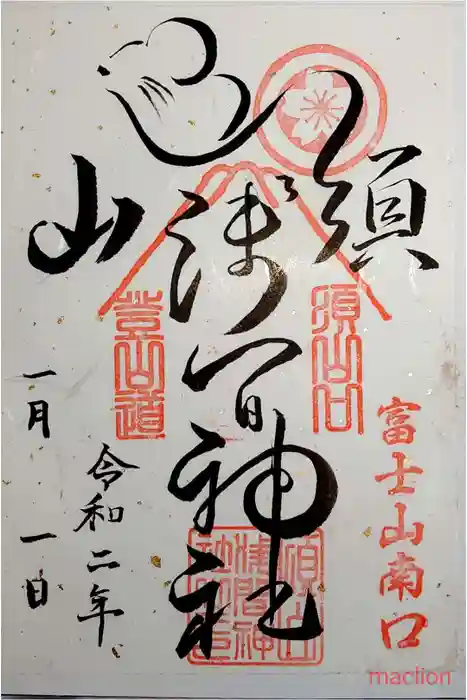 富士山南口
須山
浅間神社
須山口
登山道
須山浅間神社
令和二年
一月一日
maclion